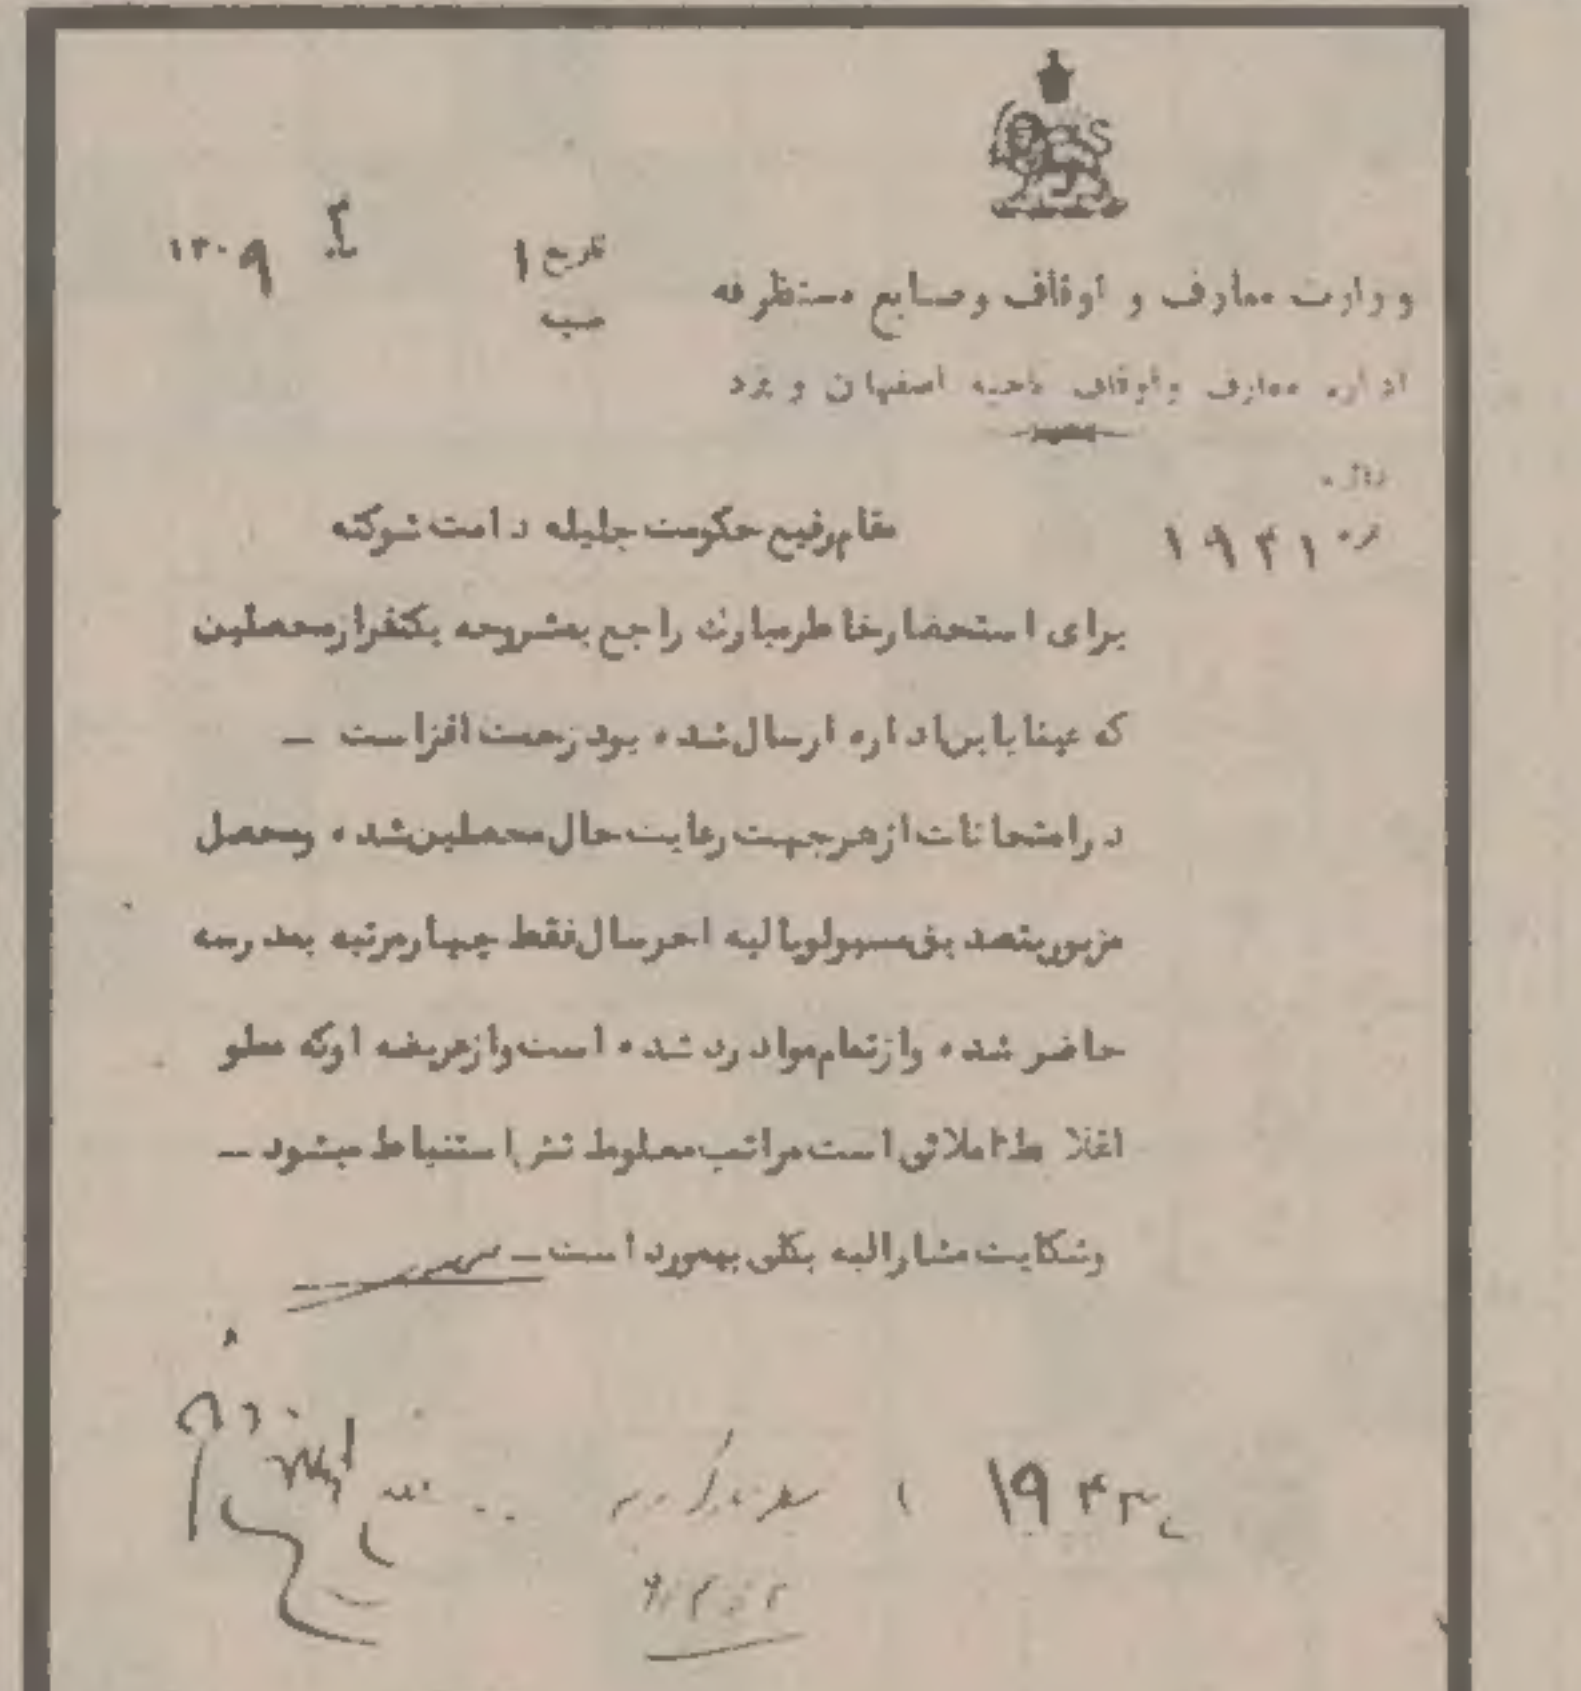 تاریخ ۱ ۴ ۱۳۰۹
وزارت معارف و اوقاف وصنایع مستظرفه
ضمیمه
اداره معارف واوقاف ناحیه اصفهان و یزد
دائره
نمره ۱۹۴۱
مقام رفیع حکومت جلیله دامت شوکته
برای استحضار خاطر مبارک راجع بمشروحه یکنفر از محصلین
که عینا باین اداره ارسال شده بود زحمت افزاست —
در امتحانات از هر جهت رعایت حال محصلین شده ومحصل
مزبور بتصدیق مسیو لویالیه احر سال فقط چهار مرتبه بمدرسه
حاضر شده واز تمام مواد رد شده است واز عریضه او که مملو
اغلاط املائی است مراتب معلومات شر استنباط میشود —
وشکایت مشارالیه بکلی بیمورد است —